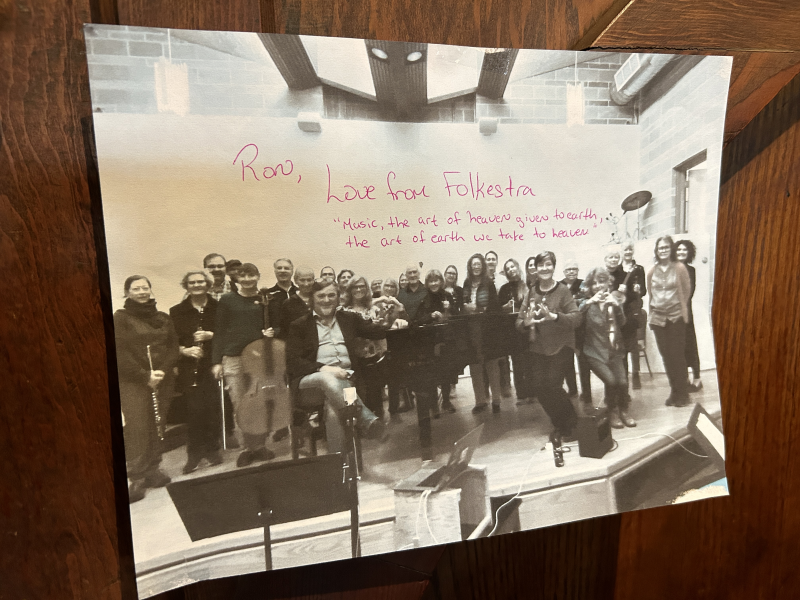 Ron,
Love from Folkestra
"Music, the art of heaven given to earth,
the art of earth we take to heaven"